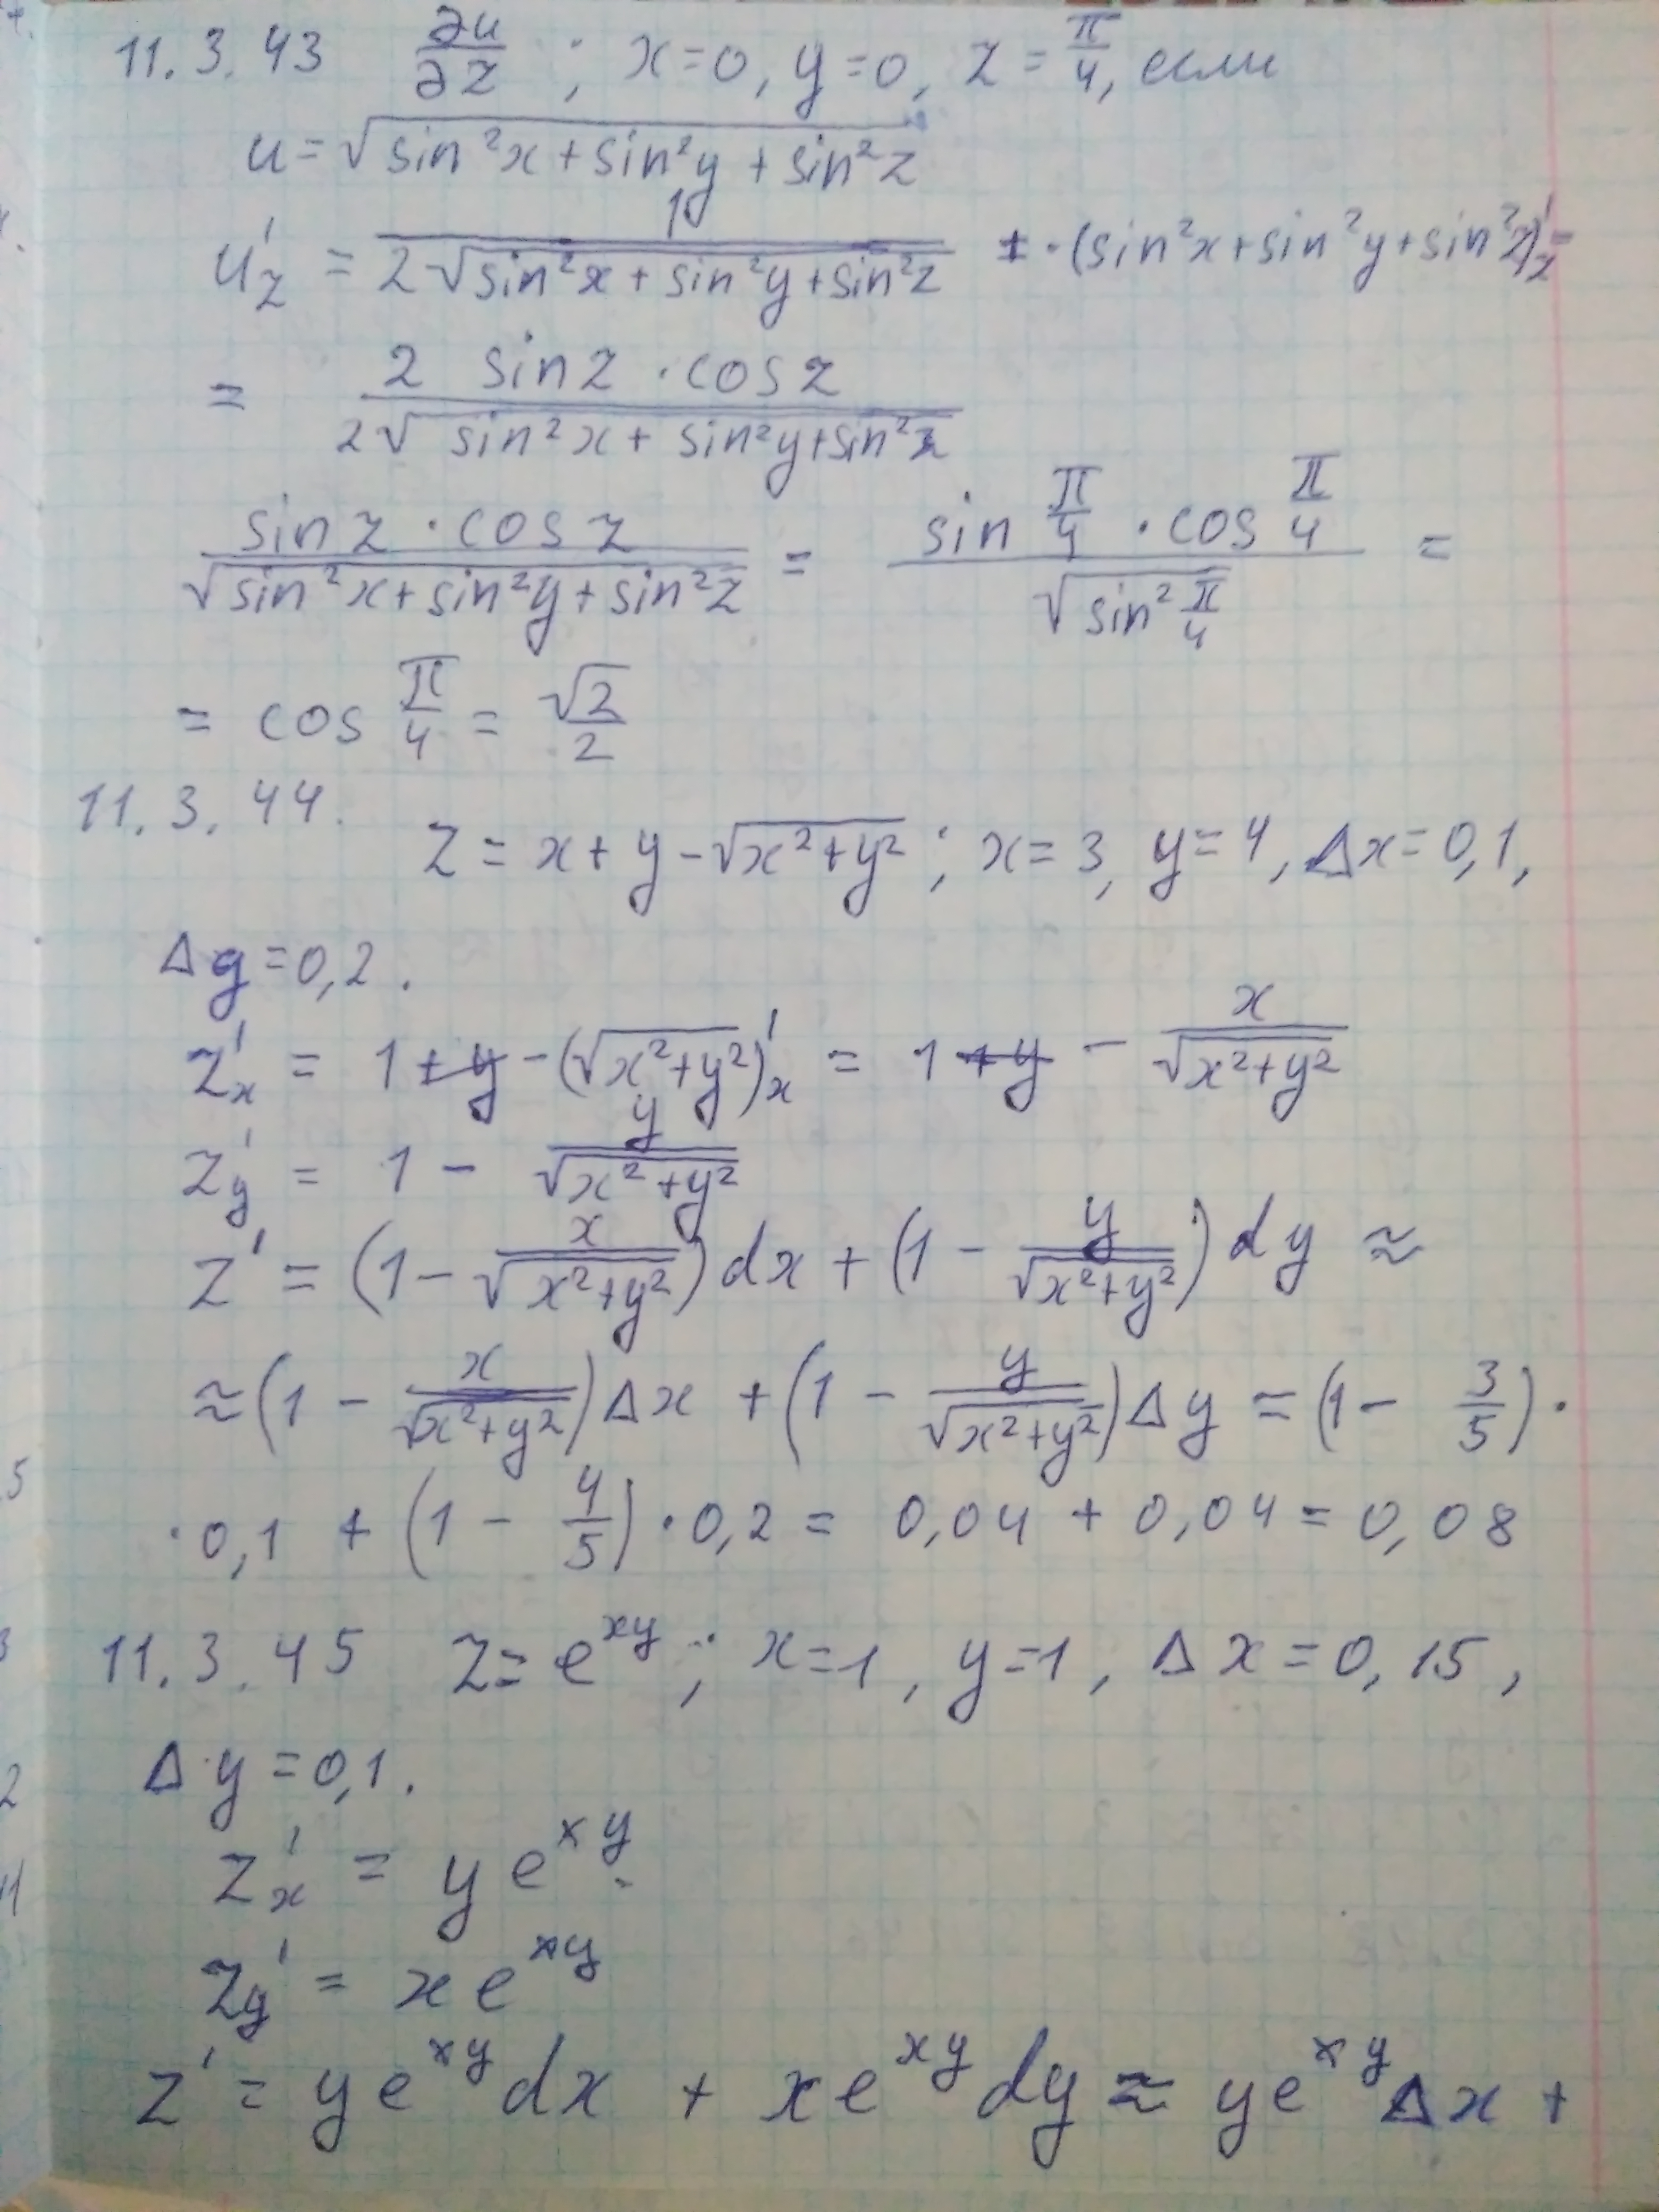 11.3.43 ∂u/∂z ; x=0, y=0, z = π/4, если
u = √(sin²x + sin²y + sin²z)
u'z = 1/(2√(sin²x + sin²y + sin²z)) · (sin²x + sin²y + sin²z)'z =
= (2 sin z · cos z)/(2√(sin²x + sin²y + sin²z))
(sin z · cos z)/√(sin²x + sin²y + sin²z) = (sin π/4 · cos π/4)/√(sin² π/4) =
= cos π/4 = √2/2
11.3.44.
z = x + y - √(x²+y²) ; x = 3, y = 4, Δx = 0,1,
Δy = 0,2.
z'x = 1 + y - (√(x²+y²))'x = 1 + y - x/√(x²+y²)
z'y = 1 - y/√(x²+y²)
z' = (1 - x/√(x²+y²)) dx + (1 - y/√(x²+y²)) dy ≈
≈ (1 - x/√(x²+y²)) Δx + (1 - y/√(x²+y²)) Δy = (1 - 3/5) ·
· 0,1 + (1 - 4/5) · 0,2 = 0,04 + 0,04 = 0,08
11.3.45 z = e^xy ; x = 1, y = 1, Δx = 0,15,
Δy = 0,1.
z'x = y e^xy
z'y = x e^xy
z' = y e^xy dx + x e^xy dy ≈ y e^xy Δx +